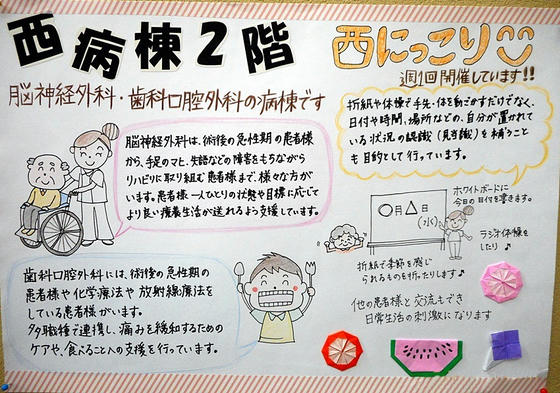 西病棟2階
西にっこり
週1回開催しています!!
脳神経外科・歯科口腔外科の病棟です
脳神経外科は、術後の急性期の患者様
から、手足のマヒ、失語などの障害をもちながら
リハビリに取り組む患者様まで、様々な方が
います。患者様一人ひとりの状態や目標に応じて
より良い療養生活が送れるよう支援しています。
折紙や体操で手先・体を動かすだけでなく、
日付や時間、場所などの、自分が置かれて
いる状況の認識(見当識)を補うこと
も目的として行っています。
ホワイトボードに
今日の日付を書きます。
○月△日
(水)
ラジオ体操を
したり♪
折紙で季節を感じ
られるものを折ったりします♪
他の患者様と交流もでき
日常生活の刺激になります
歯科口腔外科には、術後の急性期の
患者様や化学療法や放射線療法を
している患者様がいます。
多職種で連携し、痛みを緩和するための
ケアや、食べることへの支援を行っています。